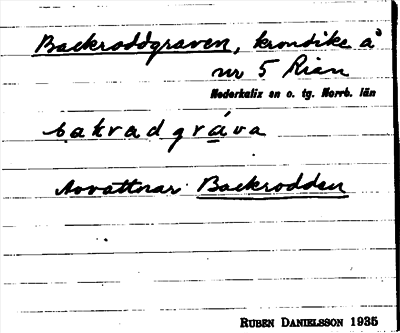 Backroddgraven, krondike å
nr 5 Rian
Nederkalix sn o. tg. Norrb. län
bakradgráva
Avvattnar Backrodden
RUBEN DANIELSSON 1935